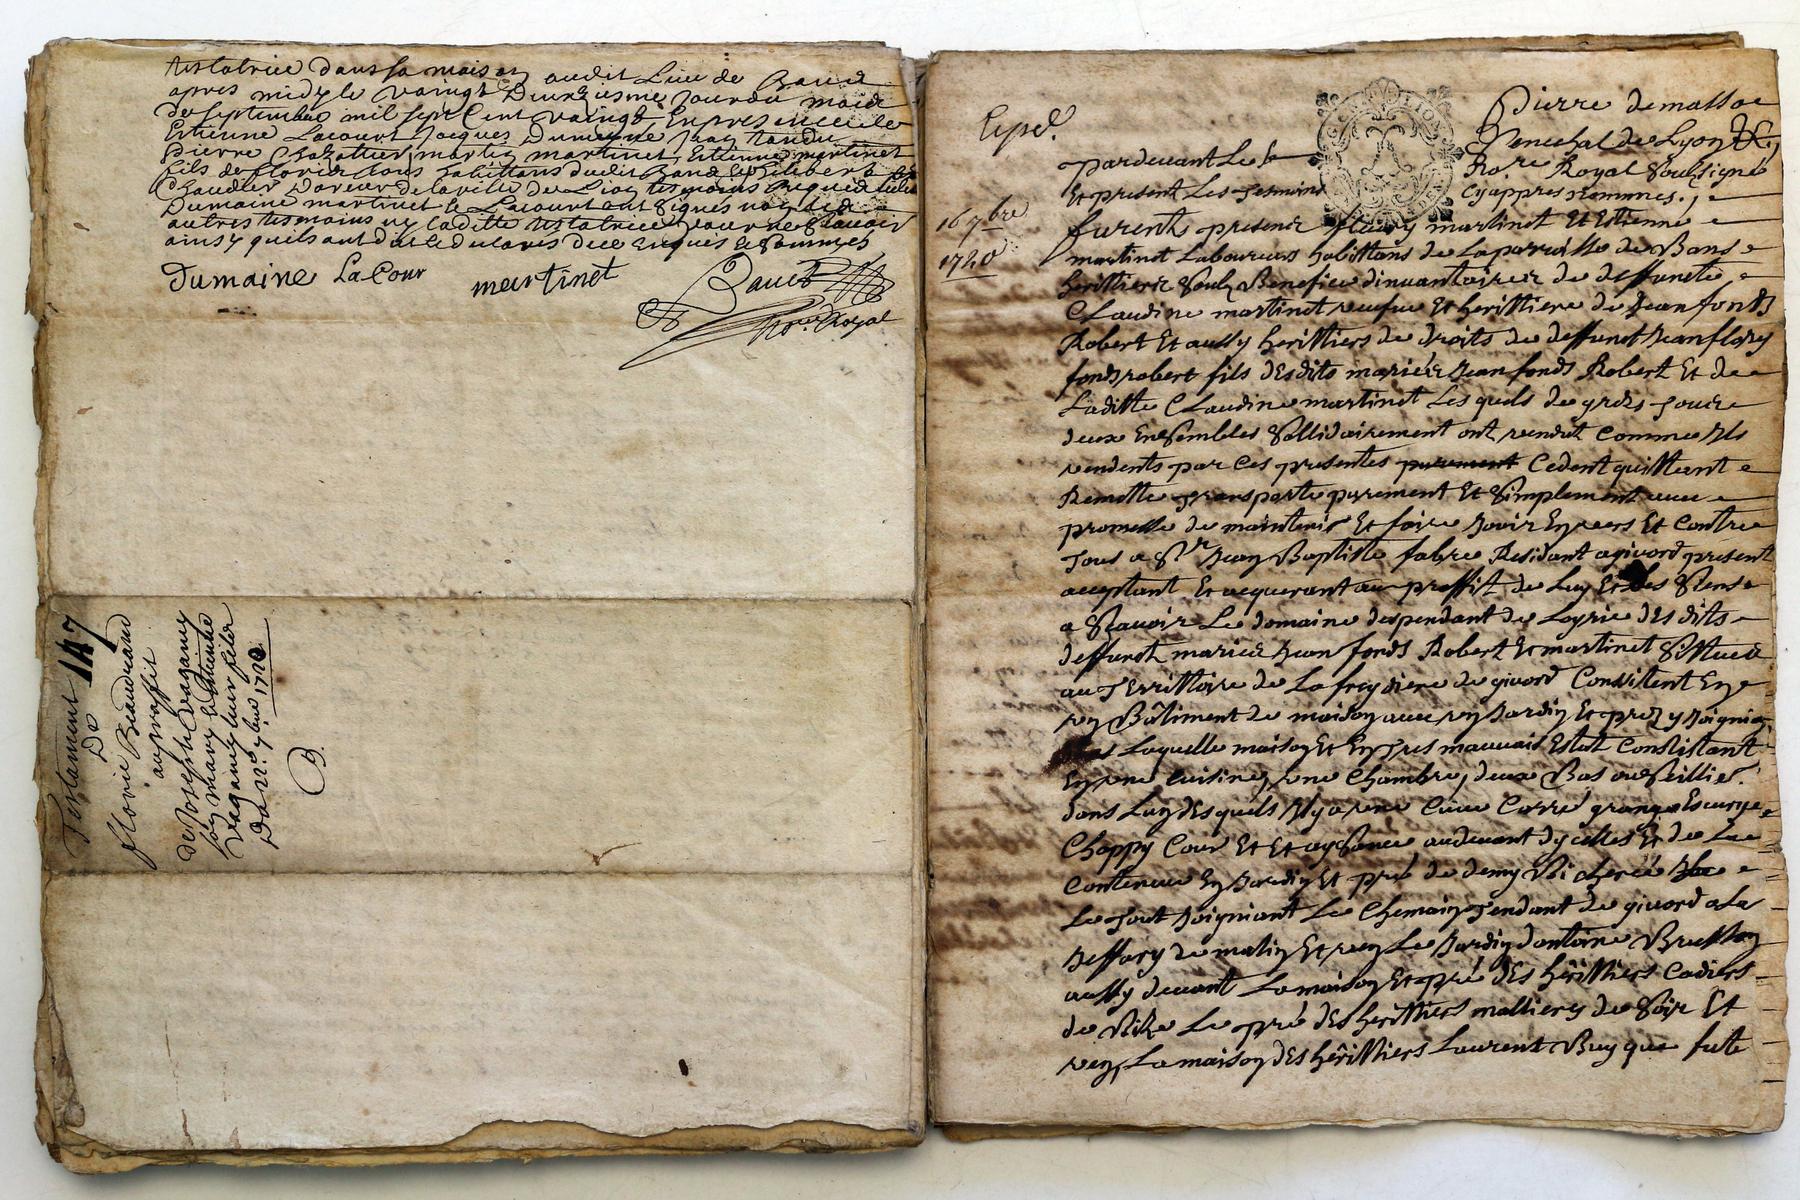 testatrice dans sa maison audit Lieu de
apres midy le vaingt Deuxiesme Jour du mois
de septembre mil sept Cent vaingt En presence de
Estienne Lacourt Jacques Dumayne Jean
Pierre Chazottier martin martinet Estienne martinet
fils de florie tous habittans dudit
Chaudier de la ville de Lion tesmoins requis
Dumaine martinet & Lacourt ont signes non les
autres tesmoins ny laditte testatrice pour ne scavoir
ainsy quils ont dit & declares de ce Enquis & sommes
Dumaine LaCour martinet
Nore Royal
Testament 147
De
florie Beaudrand
au proffit
de Joseph
son mary & Estienne
leur fils
Du 22e 7bre 1720
B
Expé.
16 7bre
1720
Pierre demassoe
Senechal de Lyon &c,
pardevant Le Nore Royal soubsigné
Et present Les tesmoins cy appres nommes.
furent presens fleury martinet Et Estienne
martinet Laboureurs habittans de La parroisse de Bans
herittiers soubz Benefice dinvantaire de deffuncte
Claudine martinet veufve Et herittiere de Jean fonds
Robert Et aussy herittiers de droits de deffunct Jean flory
fondsrobert fils desdits mariés Jean fonds Robert Et de
Laditte Claudine martinet Lesquels de
deux Ensembles sollidairement ont vendut Comme Ils
vendents par Ces presentes purement Cedent quittent
Remette transporte purement Et simplement avec
promesse de maintenir Et faire Jouir Envers Et Contre
Tous a Sr Jean Baptiste fabre Residant a givord present
acceptant Et acquerant au proffit de Luy Et des siens
a scavoir Le domaine despendant de Loyrie des dits
deffunct mariés Jean fonds Robert Et martinet situés
au Territtoire de La freydiere de givord Consistent En
un Bâtiment de maison avec un Jardin Et prez y Joignia
Laquelle maison Et En tres mauvais Estat Consistant
En une cuisine, une Chambre, deux Bas ou seillier
dans Lun desquels Il y a une Cuve Carré grange Escurye
Chappy Cour Et Et aysance audevant dycelles Et de La
Contenue En Jardin Et pré de demy Bicherée
Le Tout Joigniant Le Chemain Tendant de givord a La
de matin Et vent Le Jardin dantoine
aussy devant La maison Et pré des hérittiers Cadiers
de Bize Le pré des herittiers de soir Et
vent La maison des hérittiers Laurent que fute